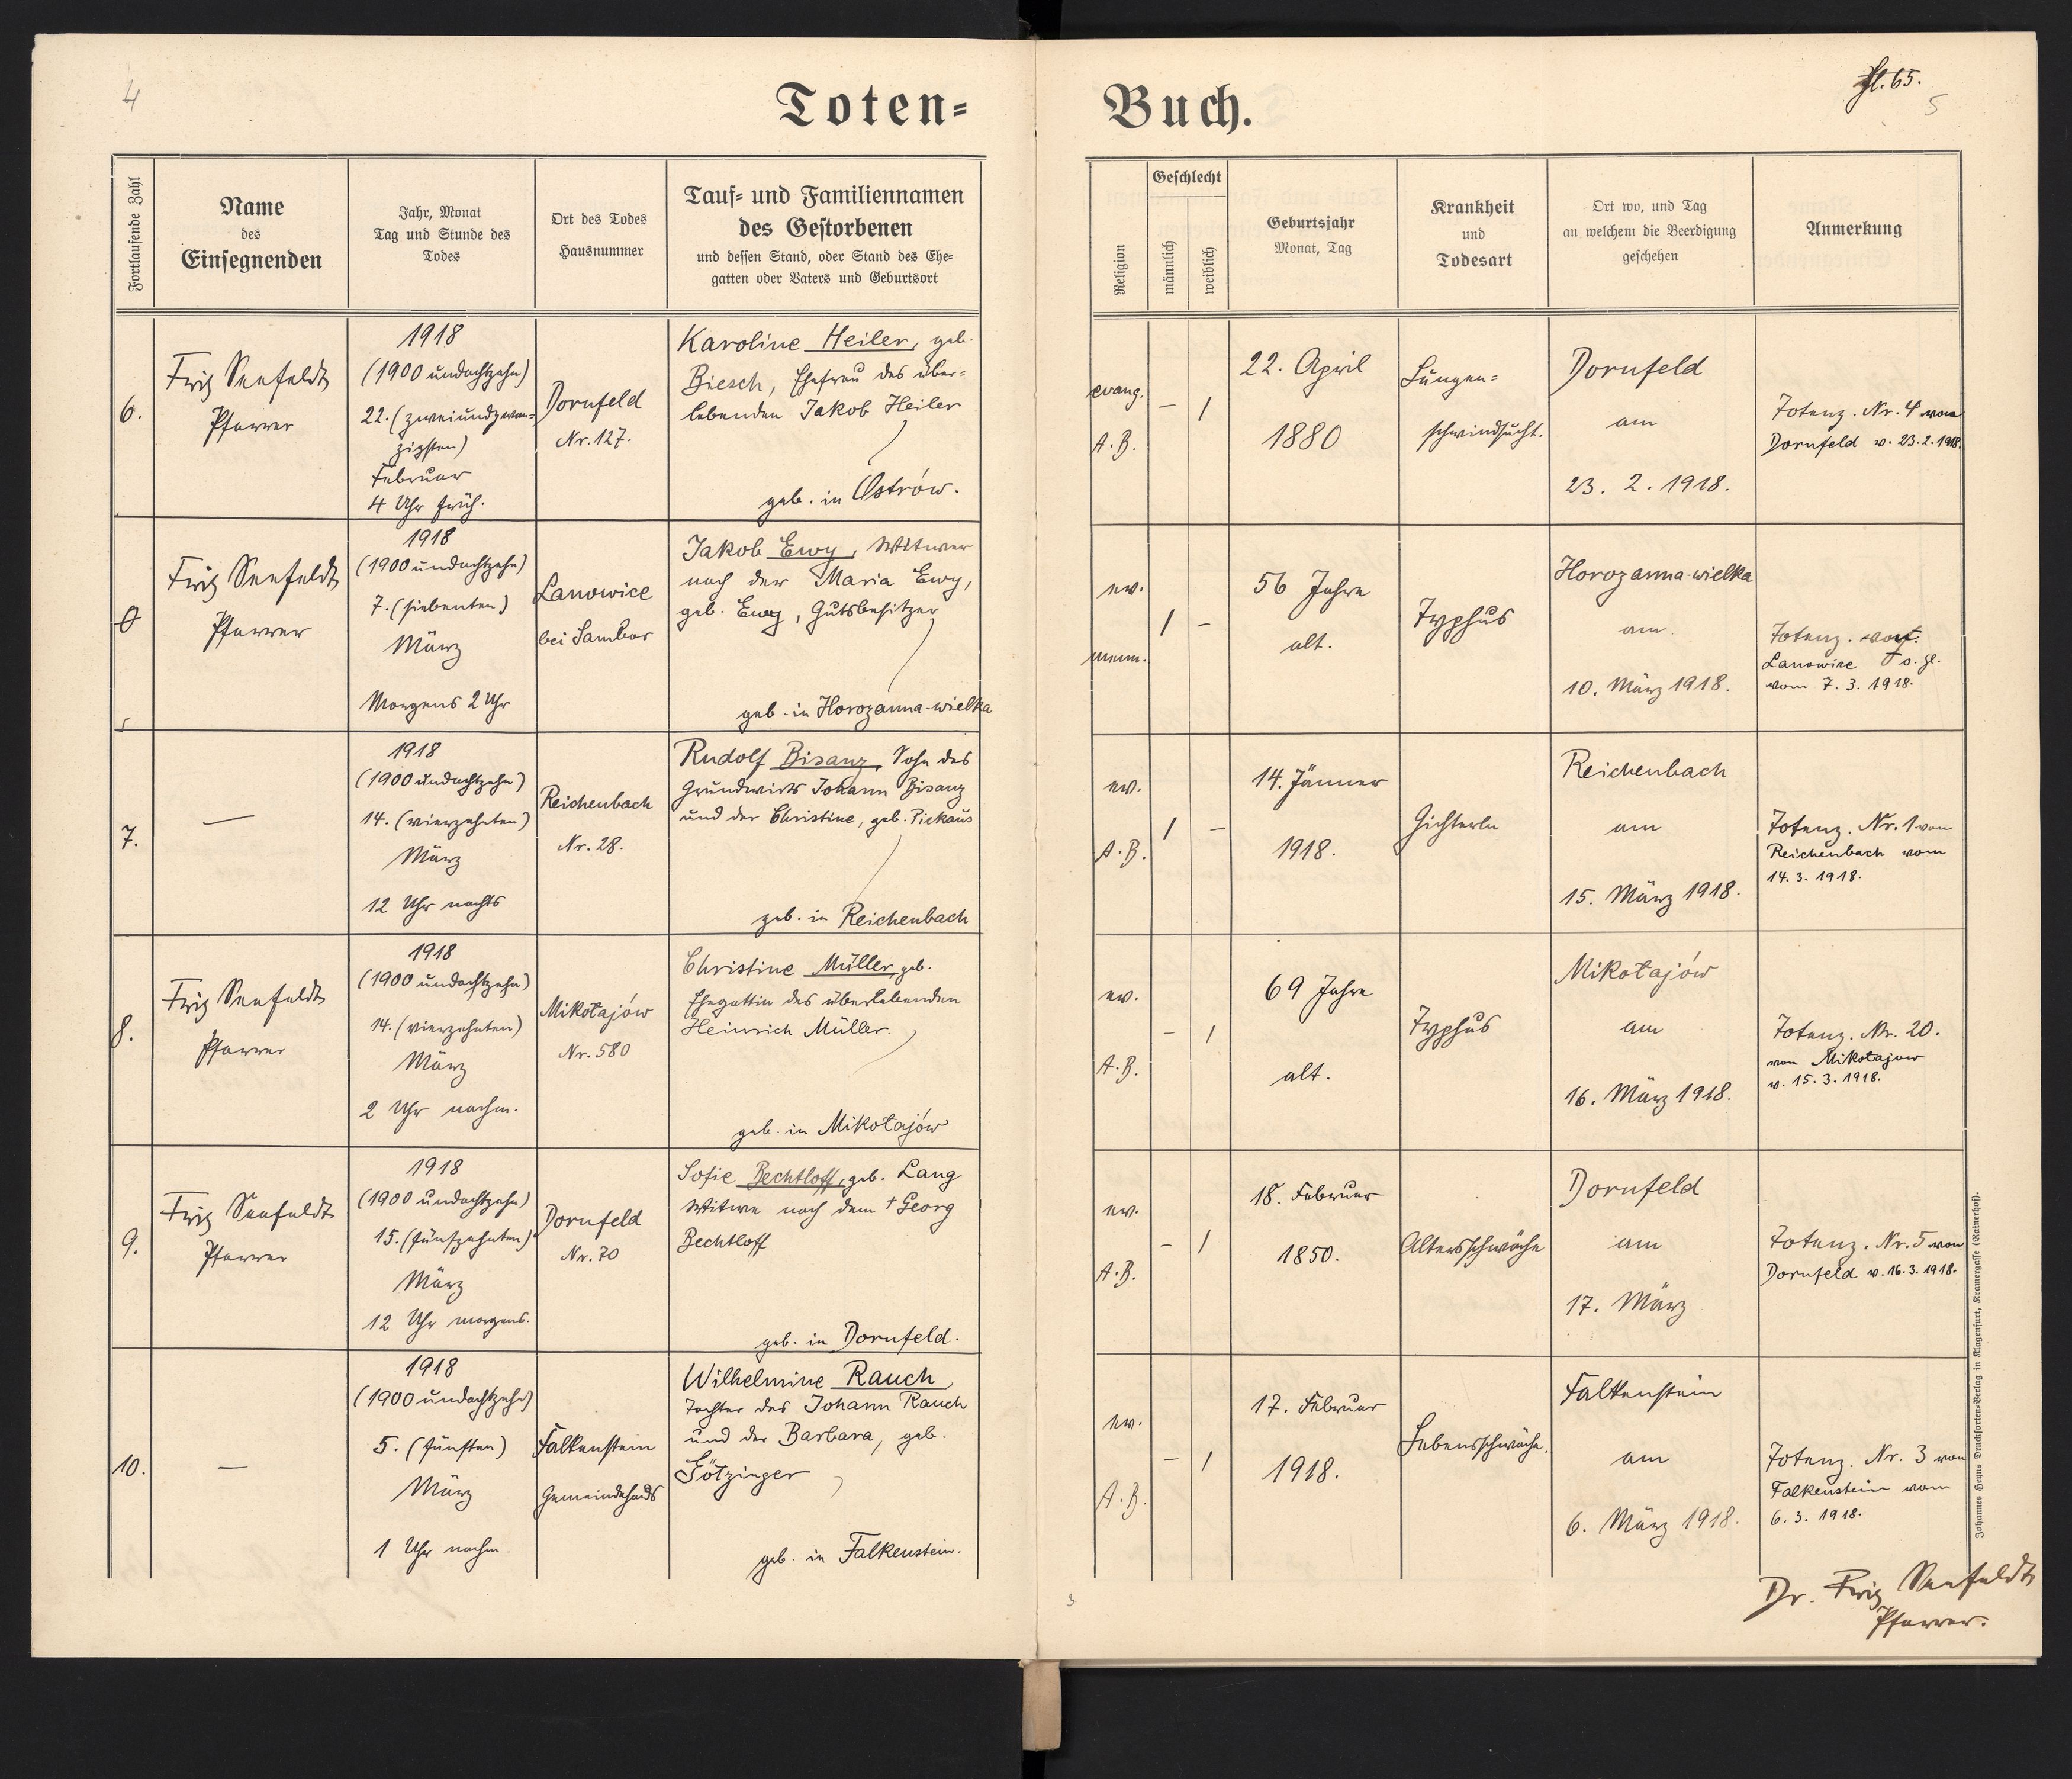 4
Toten-
Buch.
Bl. 65.
5
Fortlaufende Zahl
Name
des
Einsegnenden
Jahr, Monat
Tag und Stunde des
Todes
Ort des Todes
Hausnummer
Tauf- und Familiennamen
des Gestorbenen
und dessen Stand, oder Stand des Ehe-
gatten oder Vaters und Geburtsort
Religion
Geschlecht
männlich
weiblich
Geburtsjahr
Monat, Tag
Krankheit
und
Todesart
Ort wo, und Tag
an welchem die Beerdigung
geschehen
Anmerkung
6.
Fritz Seefeldt
Pfarrer
1918
(1900 undachtzehn)
22. (zweiundzwan-
zigsten)
Februar
4 Uhr früh.
Dornfeld
Nr. 127.
Karoline Heiler, geb.
Biesch, Ehefrau des über-
lebenden Jakob Heiler
geb. in Ostrów.
evang.
A.B.
– 1
22. April
1880
Lungen-
schwindsucht.
Dornfeld
am
23. 2. 1918.
Totenz. Nr. 4 von
Dornfeld v. 23.2.1918.
0
Fritz Seefeldt
Pfarrer
1918
(1900 undachtzehn)
7. (siebenten)
März
Morgens 2 Uhr
Lanowice
bei Sambor
Jakob Ewy, Witwer
nach der Maria Ewy,
geb. Ewy, Gutsbesitzer
geb. in Horozanna-wielka
ev.
menn.
1 –
56 Jahre
alt.
Typhus
Horozanna-wielka
am
10. März 1918.
Totenz. von
Lanowice o. Zl.
vom 7. 3. 1918.
7.
—
1918
(1900 undachtzehn)
14. (vierzehnten)
März
12 Uhr nachts
Reichenbach
Nr. 28.
Rudolf Bisanz, Sohn des
Grundwirts Johann Bisanz
und der Christine, geb. Pickaus
geb. in Reichenbach
ev.
A.B.
1 –
14. Jänner
1918.
Gichterln
Reichenbach
am
15. März 1918.
Totenz. Nr. 1 von
Reichenbach vom
14. 3. 1918.
8.
Fritz Seefeldt
Pfarrer
1918
(1900 undachtzehn)
14. (vierzehnten)
März
2 Uhr nachm.
Mikołajów
Nr. 580
Christine Müller, geb.
Ehegattin des überlebenden
Heinrich Müller.
geb. in Mikołajów
ev.
A.B.
– 1
69 Jahre
alt.
Typhus
Mikołajów
am
16. März 1918.
Totenz. Nr. 20.
von Mikołajow
v. 15. 3. 1918.
9.
Fritz Seefeldt
Pfarrer
1918
(1900 undachtzehn)
15. (fünfzehnten)
März
12 Uhr morgens.
Dornfeld
Nr. 70
Sofie Bechtloff, geb. Lang
Witwe nach dem † Georg
Bechtloff
geb. in Dornfeld.
ev.
A.B.
– 1
18. Februar
1850.
Altersschwäche
Dornfeld
am
17. März
Totenz. Nr. 5 von
Dornfeld v. 16. 3. 1918.
10.
—
1918
(1900 undachtzehn)
5. (fünften)
März
1 Uhr nachm
Falkenstein
Gemeindehaus
Wilhelmine Rauch,
Tochter des Johann Rauch
und der Barbara, geb.
Götzinger
geb. in Falkenstein.
ev.
A.B.
– 1
17. Februar
1918.
Lebensschwäche.
Falkenstein
am
6. März 1918.
Totenz. Nr. 3 von
Falkenstein vom
6. 3. 1918.
Johannes Heyns Drucksorten-Verlag in Klagenfurt, Kramergasse (Rainerhof).
3
Dr. Fritz Seefeldt
Pfarrer.